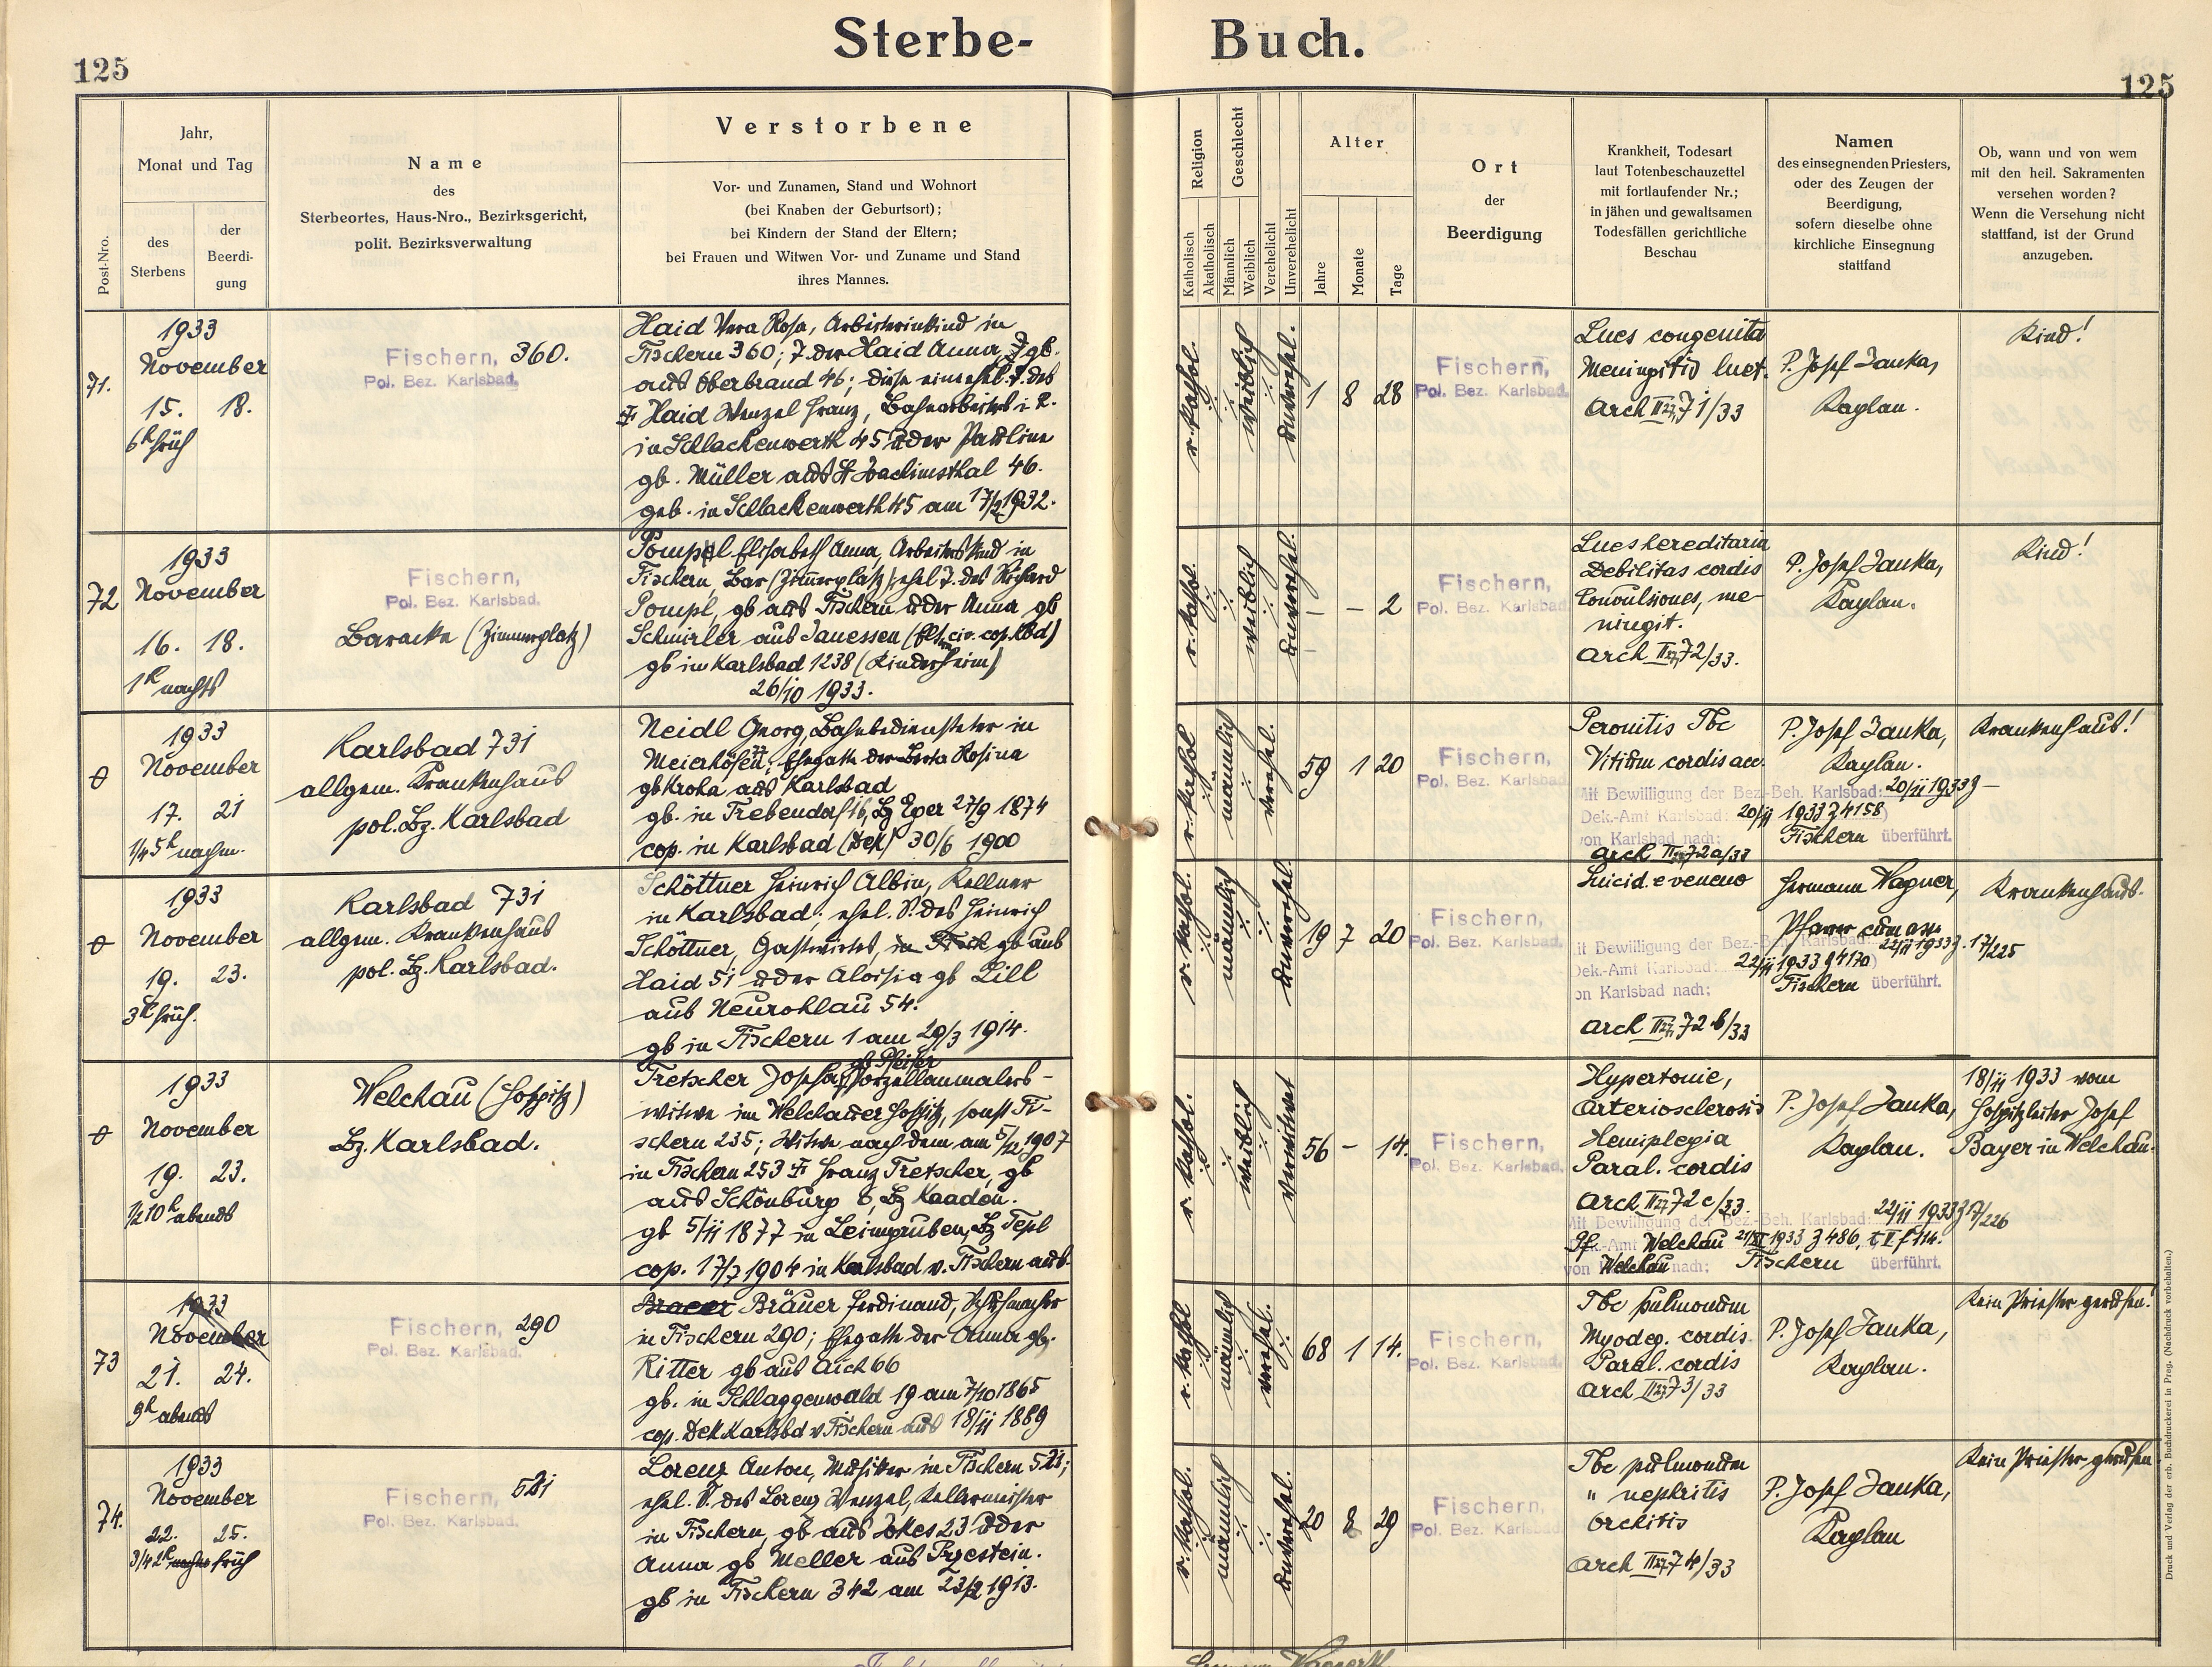 Sterbe-
Buch.
125
125
Post-Nro.
Jahr,
Monat und Tag
des
Sterbens
der
Beerdi-
gung
Name
des
Sterbeortes, Haus-Nro., Bezirksgericht,
polit. Bezirksverwaltung
Verstorbene
Vor- und Zunamen, Stand und Wohnort
(bei Knaben der Geburtsort);
bei Kindern der Stand der Eltern;
bei Frauen und Witwen Vor- und Zuname und Stand
ihres Mannes.
Religion
Katholisch
Akatholisch
Geschlecht
Männlich
Weiblich
Verehelicht
Unverehelicht
Alter
Jahre
Monate
Tage
Ort
der
Beerdigung
Krankheit, Todesart
laut Totenbeschauzettel
mit fortlaufender Nr.;
in jähen und gewaltsamen
Todesfällen gerichtliche
Beschau
Namen
des einsegnenden Priesters,
oder des Zeugen der
Beerdigung,
sofern dieselbe ohne
kirchliche Einsegnung
stattfand
Ob, wann und von wem
mit den heil. Sakramenten
versehen worden?
Wenn die Versehung nicht
stattfand, ist der Grund
anzugeben.
71.
1933
November
15. 18.
6h früh
Fischern, 360.
Pol. Bez. Karlsbad.
Haid Vera Rosa, Arbeiterinkind in
Fischern 360; T. der Haid Anna, gb.
aus Oberbrand 46; diese eine ehel. T. des
Haid Wenzel Franz, Bahnarbeiters i. R.
in Schlackenwerth 45 u der Pauline
gb. Müller aus St Joachimsthal 46.
geb. in Schlackenwerth 45 am 17/2 1932.
r. kathol.
weiblich
unverehel.
1 8 28
Fischern,
Pol. Bez. Karlsbad.
Lues congenita
Meningitis luet.
Arch II 71/33
P. Josef Janka,
Kaplan.
Kind!
72
1933
November
16. 18.
1h nachts
Fischern,
Pol. Bez. Karlsbad.
Baracke (Zimmerplatz)
Pompl Elisabeth Anna, Arbeiterskind in
Fischern, Bar (Zimmerplatz); ehel T. des Richard
Pompl, gb aus Fischern u der Anna gb
Schmirler aus Janessen (Elt. civ. cop. Kbd)
gb in Karlsbad 1238 (Kinderheim)
26/10 1933.
r. kathol.
weiblich
unverehel.
– – 2
Fischern,
Pol. Bez. Karlsbad
Lues hereditaria
Debilitas cordis
Convulsiones, me-
ningit.
Arch II 72/33.
P. Josef Janka,
Kaplan.
Kind!
1933
November
17. 21
1/4 5h nachm.
Karlsbad 731
allgem. Krankenhaus
pol. Bz. Karlsbad
Neidl Georg, Bahnbediensteter in
Meierhöfen; Ehegatte der Berta Rosina
gb Kroha aus Karlsbad
gb. in Trebendorf 16, Bz Eger 27/9 1874
cop. in Karlsbad (Dek) 30/6 1900
r. kathol
männlich
verehel.
59 1 20
Fischern,
Pol. Bez. Karlsbad
Peronitis Tbc
Vitium cordis acc.
Mit Bewilligung der Bez.-Beh. Karlsbad: 20/11 1933
Dek.-Amt Karlsbad: 20/11 1933 Z 4158)
von Karlsbad nach: Fischern überführt.
Arch II 72a/33
P. Josef Janka,
Kaplan.
Krankenhaus!
1933
November
19. 23.
3h früh.
Karlsbad 731
allgem. Krankenhaus
pol. Bz. Karlsbad.
Schöttner Heinrich Albin, Kellner
in Karlsbad; ehel. S. des Heinrich
Schöttner, Gastwirtes, in Fisch gb aus
Haid 51 u der Aloisia gb Lill
aus Neurohlau 54.
gb in Fischern 1 am 29/3 1914.
r. kathol.
männlich
unverehel.
19 7 20
Fischern,
Pol. Bez. Karlsbad.
Suicid. e veneno
it Bewilligung der Bez.-Beh. Karlsbad: 22/11 1933 Z. 17/225
Dek.-Amt Karlsbad: 22/11 1933 Z 4170)
on Karlsbad nach: Fischern überführt.
Arch II 72 b/33
Hermann Wagner,
Pfarrer
Krankenhaus.
1933
November
19. 23.
1/2 10h abends
Welchau (Hospitz)
Bz. Karlsbad.
gb Pfeifer
Tretscher Josefa, Porzellanmalers-
witwe im Welchauer Hospitz, sonst Fi-
schern 235; Witwe nach dem am 5/12 1907
in Fischern 253 Franz Tretscher, gb
aus Schönburg 8, Bz Kaaden.
gb 5/11 1877 in Leimgruben, Bz Tepl
cop. 17/7 1904 in Karlsbad v. Fischern aus.
r. kathol.
weiblich
verwitwet
56 – 14.
Fischern,
Pol. Bez. Karlsbad.
Hypertonie,
Arteriosclerosis
Hemiplegia
Paral. cordis
Arch II 72 c/33.
Mit Bewilligung der Bez.-Beh. Karlsbad: 22/11 1933 Z 17/226
Pf.-Amt Welchau 21/XI 1933 Z 486, t I f 114.
von Welchau nach: Fischern überführt.
P. Josef Janka,
Kaplan.
18/11 1933 vom
Hospitzleiter Josef
Bayer in Welchau.
73
1933
November
21. 24.
9h abends
Fischern, 290
Pol. Bez. Karlsbad.
Bräuer Ferdinand, Schuhmacher
in Fischern 290; Ehegatte der Anna gb.
Ritter gb aus Aich 66
gb. in Schlaggenwald 19 am 7/10 1865
cop. Dek Karlsbd v Fischern aus 18/11 1889
r. kathol
männlich
verehel.
68 1 14.
Fischern,
Pol. Bez. Karlsbad.
Tbc pulmonum
Myodeg. cordis
Paral. cordis
Arch II 73/33
P. Josef Janka,
Kaplan.
Kein Priester gerufen!
74.
1933
November
22. 25.
3/4 2h früh
Fischern, 521
Pol. Bez. Karlsbad.
Lorenz Anton, Musiker in Fischern 521;
ehel. S. des Lorenz Wenzel, Kellermeister
in Fischern, gb aus Jokes 23 u der
Anna gb Meller aus Przestein.
gb in Fischern 342 am 23/2 1913.
r. kathol.
männlich
unverehel.
20 8 29
Fischern,
Pol. Bez. Karlsbad.
Tbc pulmonum
" nephritis
Orchitis
Arch II 74/33
P. Josef Janka,
Kaplan
Kein Priester gerufen
Druck und Verlag der erb. Buchdruckerei in Prag. (Nachdruck vorbehalten.)